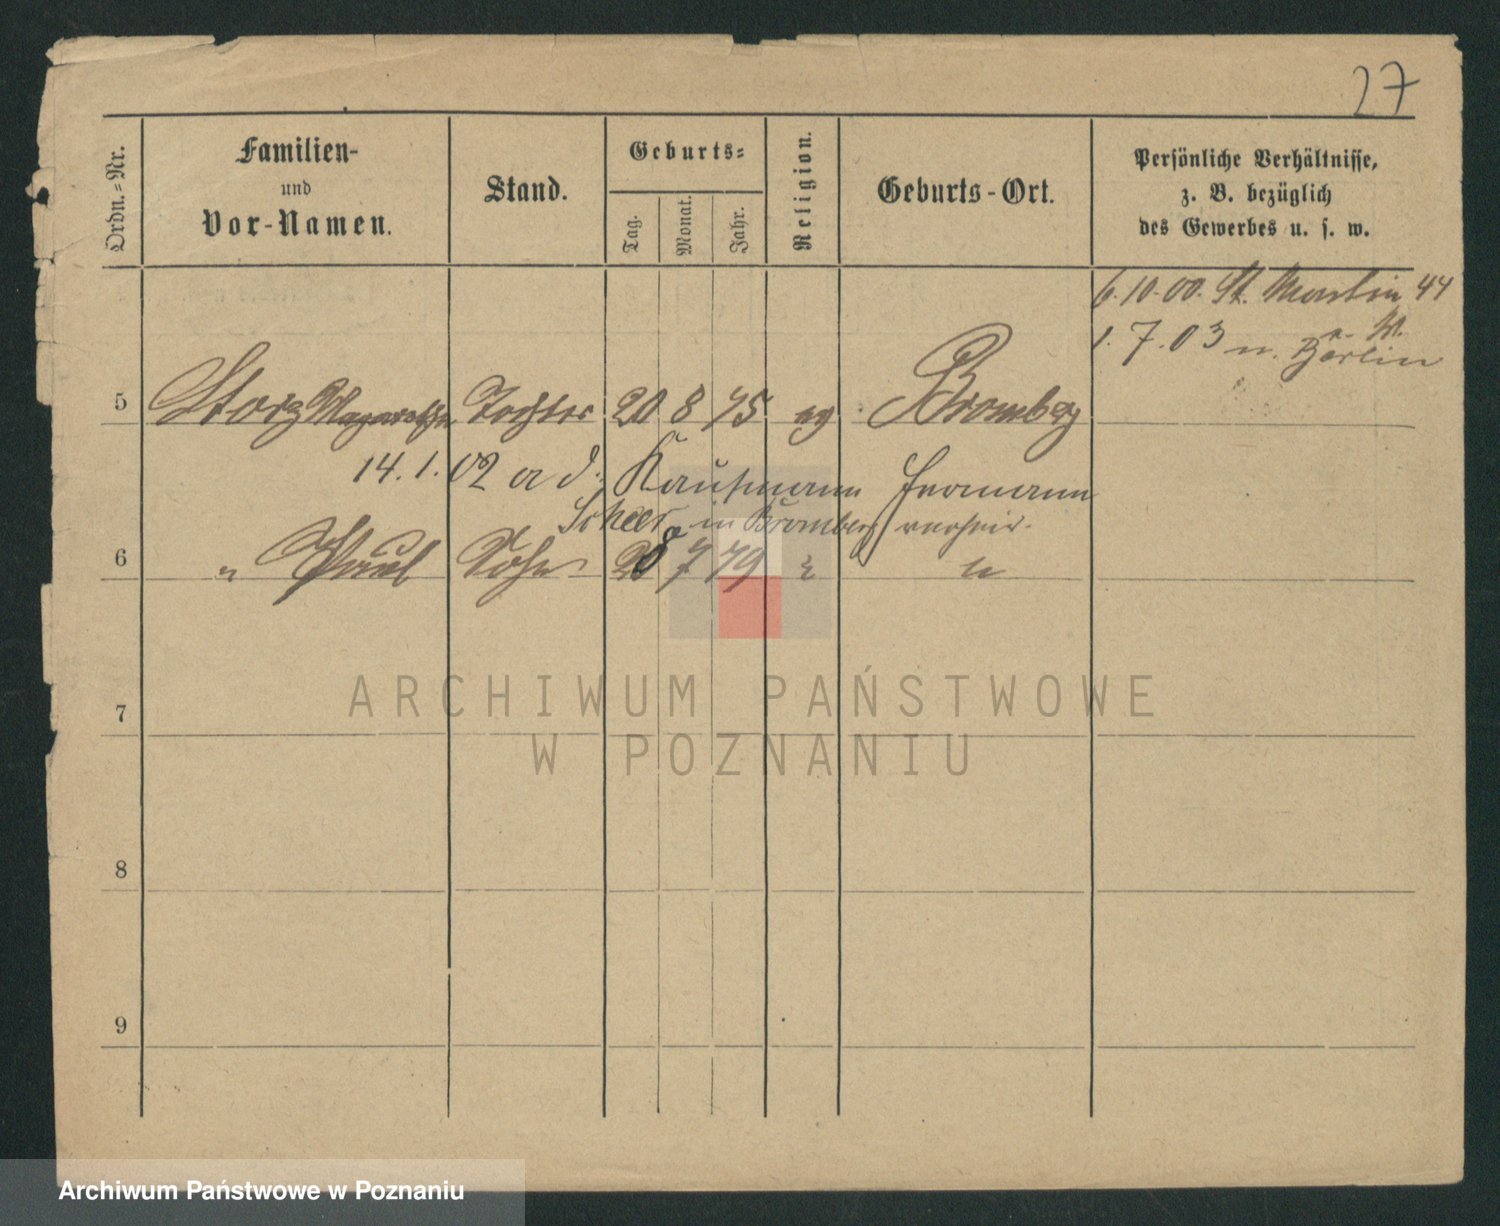 27
Ordn.=Nr.
Familien-
und
Vor-Namen.
Stand.
Geburts=
Tag.
Monat.
Jahr.
Religion.
Geburts-Ort.
Persönliche Verhältnisse,
z. B. bezüglich
des Gewerbes u. s. w.
6.10.00. St. Martin 44
1.7.03 n. Berlin
5 Storz Margarethe Tochter 20 8 75 ev Bromberg
14.1.02 a d. Kaufmann Hermann
Scheer in Bromberg verheir.
6 " Paul Sohn 28 7 79 " "
7
8
9
ARCHIWUM PAŃSTWOWE
W POZNANIU
Archiwum Państwowe w Poznaniu